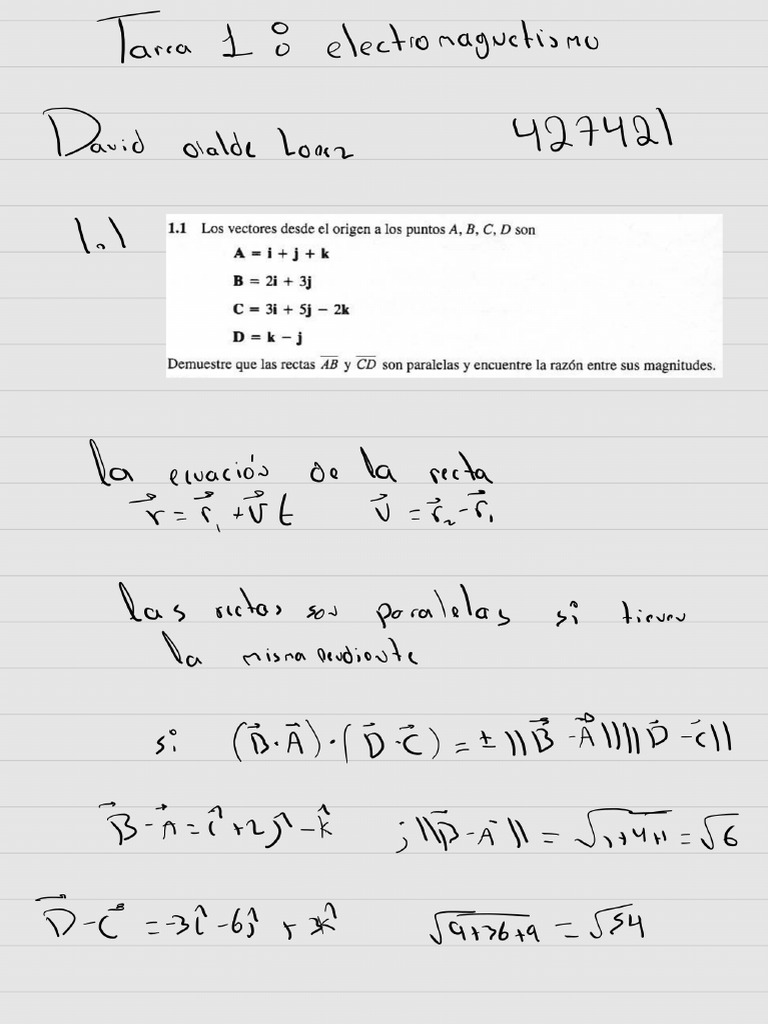 Tarea 1 : electromagnetismo
David olalde Lopez 427421
1.1
1.1 Los vectores desde el origen a los puntos A, B, C, D son
A = i + j + k
B = 2i + 3j
C = 3i + 5j − 2k
D = k − j
Demuestre que las rectas A̅B̅ y C̅D̅ son paralelas y encuentre la razón entre sus magnitudes.
la ecuación de la recta
r⃗ = r⃗₁ + v⃗ t v⃗ = r⃗₂ - r⃗₁
las rectas son paralelas si tienen
la misma pendiente
si (B⃗·A⃗)·(D⃗·C⃗) = ± ||B⃗ - A⃗|| ||D⃗ - C⃗||
B⃗ - A⃗ = î + 2ĵ - k̂ ; ||B⃗ - A⃗|| = √1+4+1 = √6
D⃗ - C⃗ = -3î - 6ĵ + 3k̂ √9+36+9 = √54